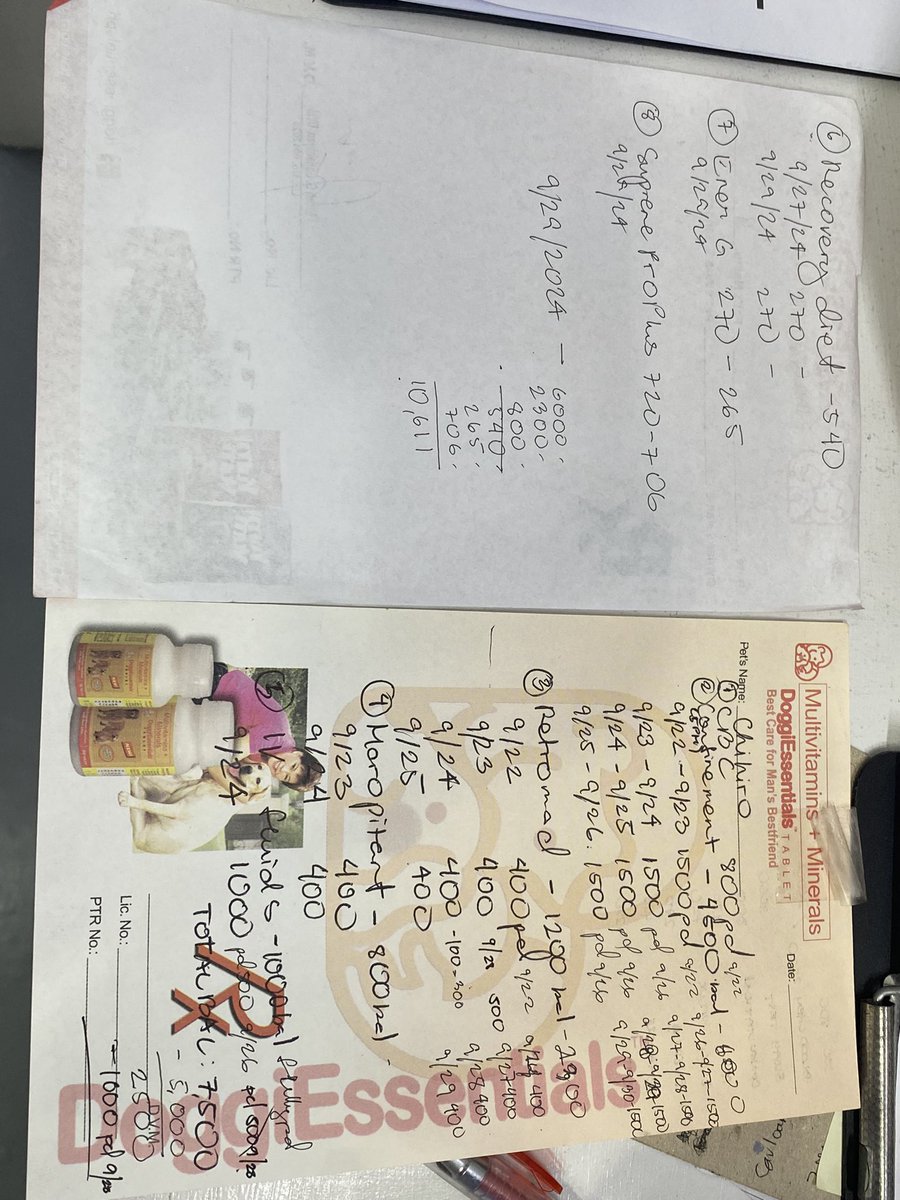 Multivitamins + Minerals
DoggiEssentials™ TABLET
Best Care for Man's Bestfriend
Pet's Name: Chihiro
Date:
① CBC 800 pd 9/22
② Confinement - 4500 bal - 6000
9/22 - 9/23 1500 pd 9/22 9/26-9/27-1500
9/23 - 9/24 1500 pd 9/26 9/27-9/28-1500
9/24 - 9/25 1500 pd 9/26
9/25 - 9/26. 1500 pd 9/26 9/29-9/30 1500
③ Retromad - 1200 bal - 2300
9/22 400 pd 9/22 9/26 400
9/23 400 9/27 400
9/24 400 -100=300 9/28 400
9/25 400 9/29 400
④ Maropitant - 800 bal -
9/23 400
9/24 400
fluids - 1000 bal fully pd
9/24 1000 pd 500 9/26 pd 500 9/28
TOTAL BAL: 7,500
- 5,000
2500
DVM
- 1000 pd 9/28
Lic. No.:
PTR No.:
DoggiEssentials™
⑥ Recovery diet - 540
9/27/24 270 -
9/29/24 270 -
⑦ Ener G 270 - 265
9/29/24
⑧ Sayprene Pro Plus 720 - 706
9/29/24
9/29/2024 - 6000.
2300.
800.
540.
265.
706.
10,611